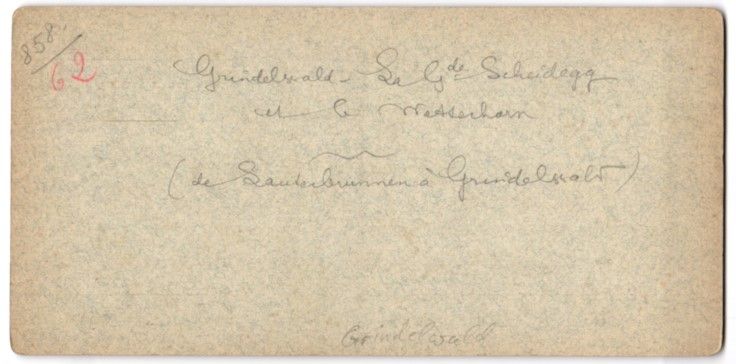 858/62
Grindelwald - La Gde Scheidegg
et le Wetterhorn
(de Lauterbrunnen à Grindelwald)
Grindelwald